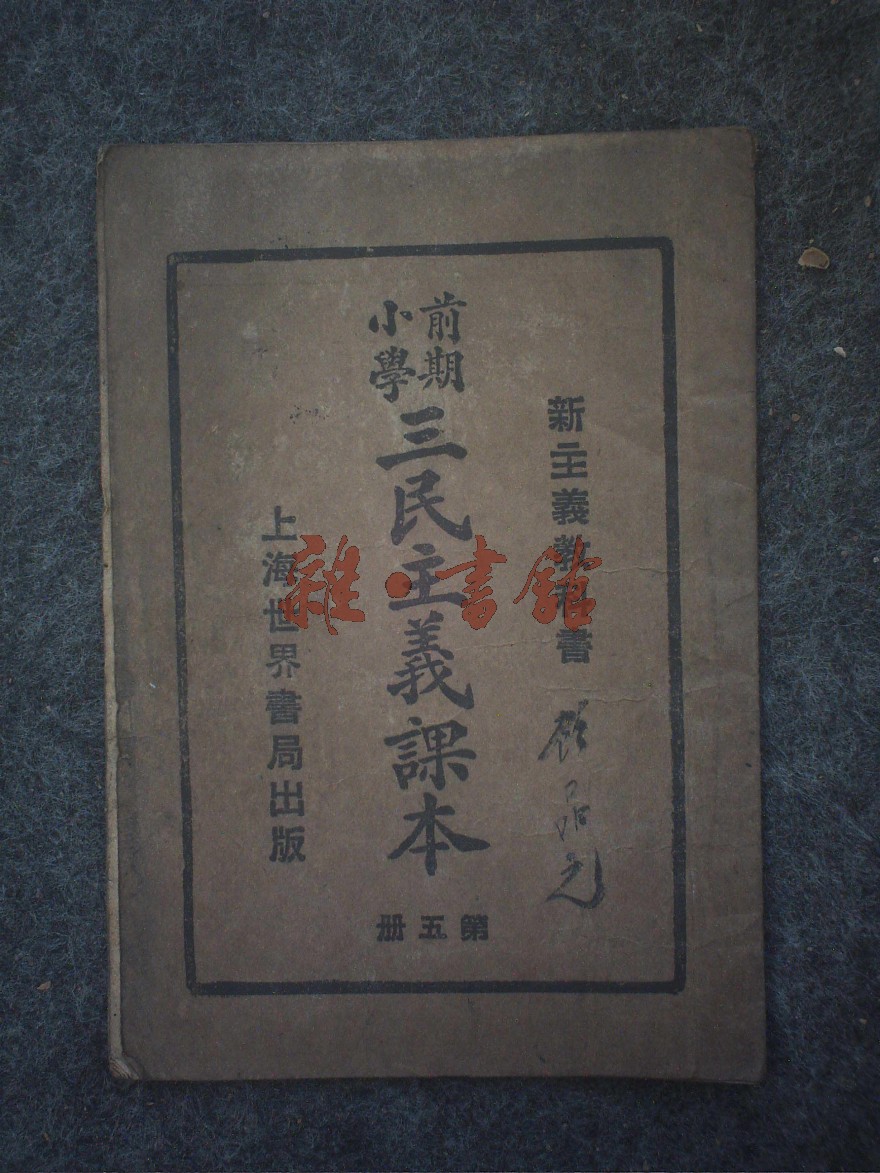 新主義教科書
前期
小學
三民主義課本
第五冊
上海世界書局出版
雜·書館